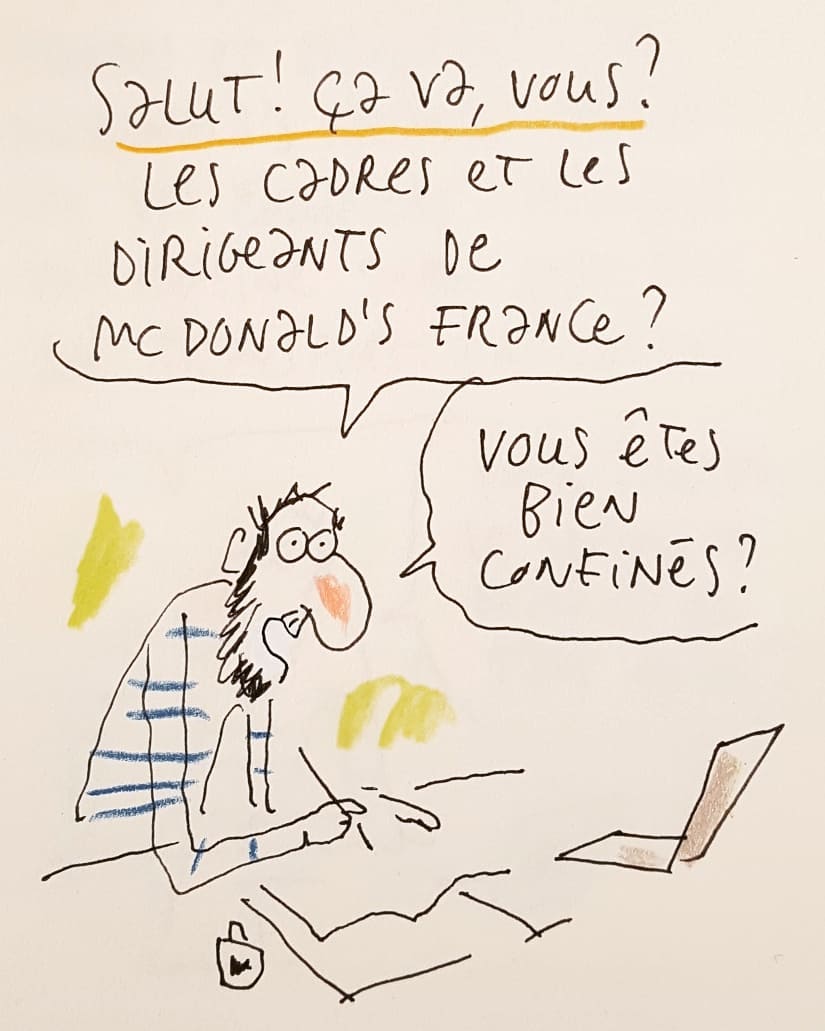 Salut! ça va, vous?
Les cadres et les
dirigeants de
McDonald's France?
Vous êtes
bien
confinés?